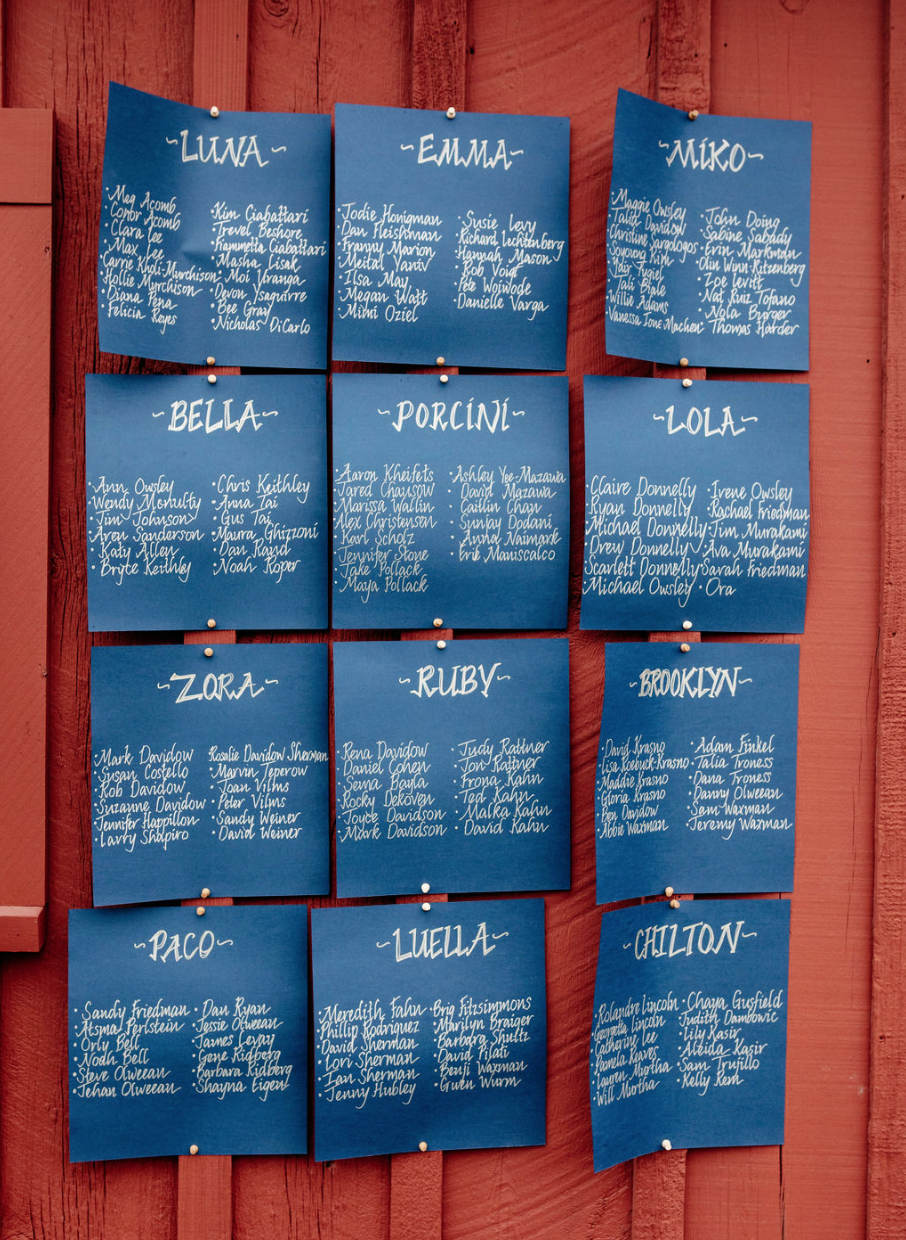 ~LUNA~
·Meg Acomb
·Conor Acomb
·Clara Lee
·Max Lee
·Carrie Kholi-Murchison
·Hollie Murchison
·Diana Pena
·Felicia Reyes
·Kim Ciabattari
·Trevel Beshore
·Fiammetta Ciabattari
·Masha Lisak
·Moi Yranga
·Devon Ysaguirre
·Bee Gray
·Nicholas DiCarlo
~EMMA~
·Jodie Honigman
·Dan Fleishman
·Franny Marion
·Meital Yaniv
·Ilsa May
·Megan Watt
·Mimi Oziel
·Susie Levy
·Richard Lechtenberg
·Hannah Mason
·Rob Voigt
·Pete Woiwode
·Danielle Varga
~MIKO~
·Maggie Owsley
·Talia Davidow
·Christine
·Soyoung Kim
·Yair
·Tali Biale
·Willie Adams
·Vanessa Ione Machen
·John Doing
·Sabine Sabady
·Erin Markman
·Olin Wynn Ritzenberg
·Zoe Levitt
·Nat Ruiz Tofano
·Nola Burger
·Thomas Harder
~BELLA~
·Ann Owsley
·Wendy
·Jim Johnson
·Aren Sanderson
·Katy Allen
·Bryte Keithley
·Chris Keithley
·Anna Tai
·Gus Tai
·Maura Ghizzoni
·Dan Rand
·Noah Roper
~PORCINI~
·Aaron Kheifets
·Jared Chausow
·Marissa Wallin
·Alex Christensen
·Karl Scholz
·Jennifer Stone
·Jake Pollack
·Maya Pollack
·Ashley Yee-Mazawa
·David Mazawa
·Caitlin Chan
·Sunjay Dodani
·Anna Naimark
·Erik Maniscalco
~LOLA~
·Claire Donnelly
·Ryan Donnelly
·Michael Donnelly
·Drew Donnelly
·Scarlett Donnelly
·Michael Owsley
·Irene Owsley
·Rachael Friedman
·Jim Murakami
·Ava Murakami
·Sarah Friedman
·Ora
~ZORA~
·Mark Davidow
·Susan Costello
·Rob Davidow
·Suzanne Davidow
·Jennifer Happillon
·Larry Shapiro
·Rosalie Davidow Sherman
·Marvin Teperow
·Joan Vilms
·Peter Vilms
·Sandy Weiner
·David Weiner
~RUBY~
·Rena Davidow
·Daniel Cohen
·Sema Bayla
·Rocky DeKoven
·Joyce Davidson
·Mark Davidson
·Judy Rattner
·Jon Rattner
·Frona Kahn
·Ted Kahn
·Malka Kahn
·David Kahn
~BROOKLYN~
·David Krasno
·Lisa Roebuck-Krasno
·Maddie Krasno
·Gloria Krasno
·Ben Davidow
·Abbie Waxman
·Adam Finkel
·Talia Troness
·Dana Troness
·Danny Olweean
·Sam Waxman
·Jeremy Waxman
~PACO~
·Sandy Friedman
·Atsma Perlstein
·Orly Bell
·Noah Bell
·Steve Olweean
·Jehan Olweean
·Dan Ryan
·Jessie Olweean
·James Levay
·Gene Ridberg
·Barbara Ridberg
·Shayna Eigen
~LUELLA~
·Meredith Fahn
·Phillip Rodriquez
·David Sherman
·Lori Sherman
·Ian Sherman
·Jenny Hubley
·Brig Fitzsimmons
·Marilyn Braiger
·Barbara Shultz
·David Pilati
·Benji Waxman
·Gwen Wurm
~CHILTON~
·Rolandre Lincoln
·Georgetta Lincoln
·Catherine Lee
·Pamela Reaves
·Lauren Mortha
·Will Mortha
·Chaya Gusfield
·Judith Dambowic
·Lily Kasir
·Albida Kasir
·Sam Trujillo
·Kelly Rem